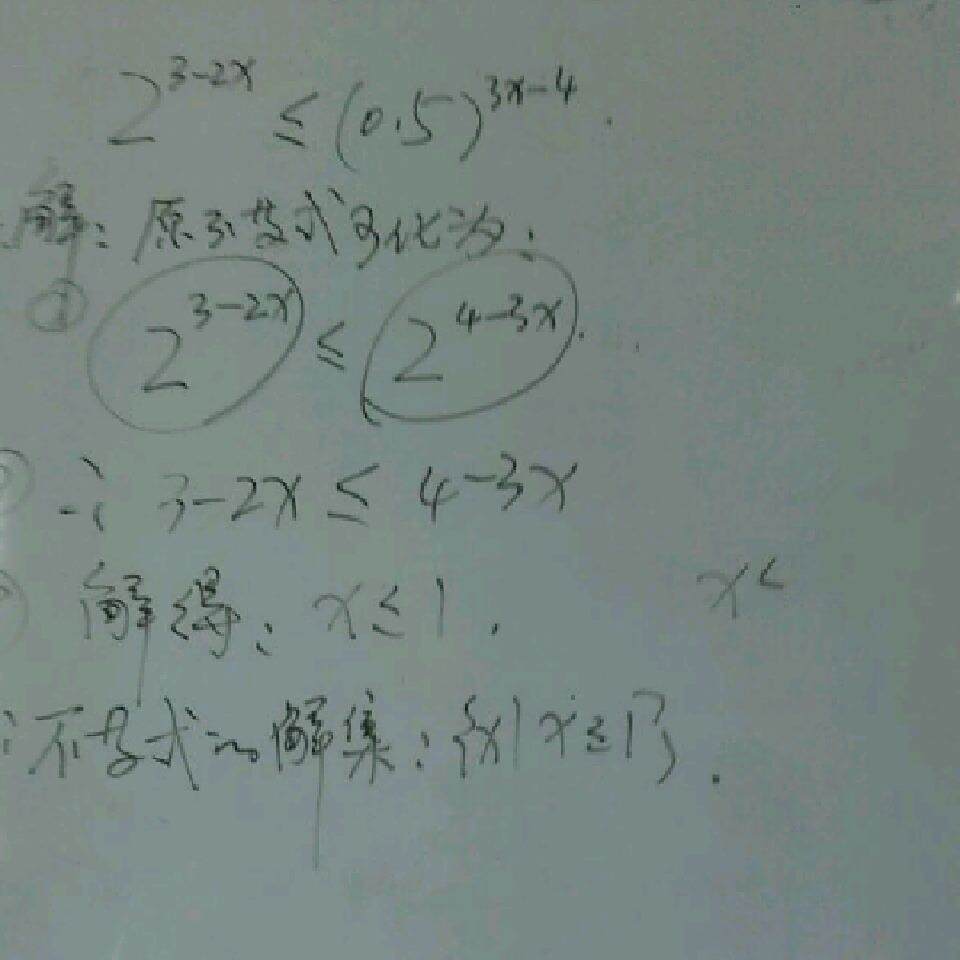 2^{3-2x} ≤ (0.5)^{3x-4}.
解：原不等式可化为：
① 2^{3-2x} ≤ 2^{4-3x}.
② ∴ 3-2x ≤ 4-3x
解得：x≤1. x<
∴不等式的解集：{x|x≤1}.